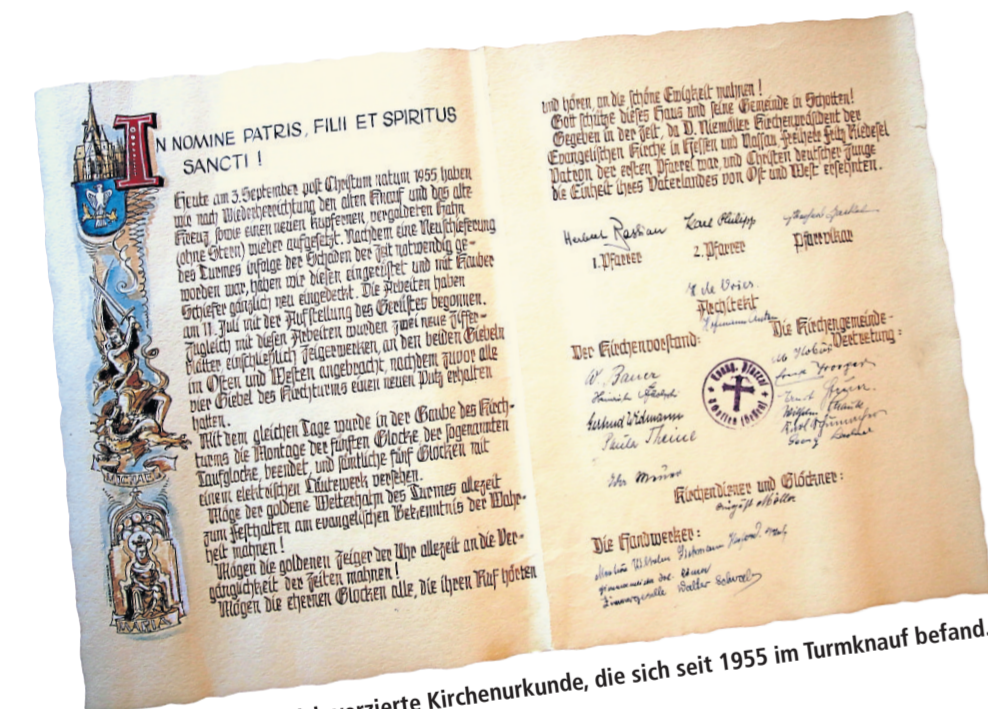 IN NOMINE PATRIS, FILII ET SPIRITUS
SANCTI !
Heute am 3. September post Christum natum 1955 haben
wir nach Wiederherrichtung den alten Knauf und das alte
Kreuz sowie einen neuen kupfernen, vergoldeten Hahn
(ohne Stern) wieder aufgesetzt. Nachdem eine Neuschieferung
des Turmes infolge der Schäden der Zeit notwendig ge-
worden war, haben wir diesen eingerüstet und mit Kauber
Schiefer gänzlich neu eingedeckt. Die Arbeiten haben
am 11. Juli mit der Aufstellung des Gerüstes begonnen.
Zugleich mit diesen Arbeiten wurden zwei neue Ziffer-
blätter einschließlich Zeigerwerken, an den beiden Giebeln
im Osten und Westen angebracht, nachdem zuvor alle
vier Giebel des Kirchturms einen neuen Putz erhalten
hatten.
Mit dem gleichen Tage wurde in der Gaube des Kirch-
turms die Montage der fünften Glocke, der sogenannten
Taufglocke, beendet, und sämtliche fünf Glocken mit
einem elektrischen Läutewerk versehen.
Möge der goldene Wetterhahn des Turmes allezeit
zum Festhalten am evangelischen Bekenntnis der Wahr-
heit mahnen !
Mögen die goldenen Zeiger der Uhr allezeit an die Ver-
gänglichkeit der Zeiten mahnen !
Mögen die ehernen Glocken alle, die ihren Ruf hörten
MICHAEL
MARIA
und hören, an die schöne Ewigkeit mahnen !
Gott schütze dieses Haus und seine Gemeinde in Schotten!
Gegeben in der Zeit, da D. Niemöller Kirchenpräsident der
Evangelischen Kirche in Hessen und Nassau, Freiherr Fritz Riedesel
Patron der ersten Pfarrei war, und Christen deutscher Zunge
die Einheit ihres Vaterlandes von Ost und West ersehnten.
Herbert Bastian Karl Philipp
1. Pfarrer 2. Pfarrer Pfarrvikar
Architekt
Der Kirchenvorstand: Die Kirchengemeinde-
Vertretung :
W. Bauer
Heinrich
Gertrud Widmann Ernst
Paula Theine Wilhelm
Karl
Evang. Pfarrei
Schotten (Hessen)
Kirchendiener und Glöckner :
August Möller
Die Handwerker :
Wilhelm
Zimmergeselle Walter
verzierte Kirchenurkunde, die sich seit 1955 im Turmknauf befand.